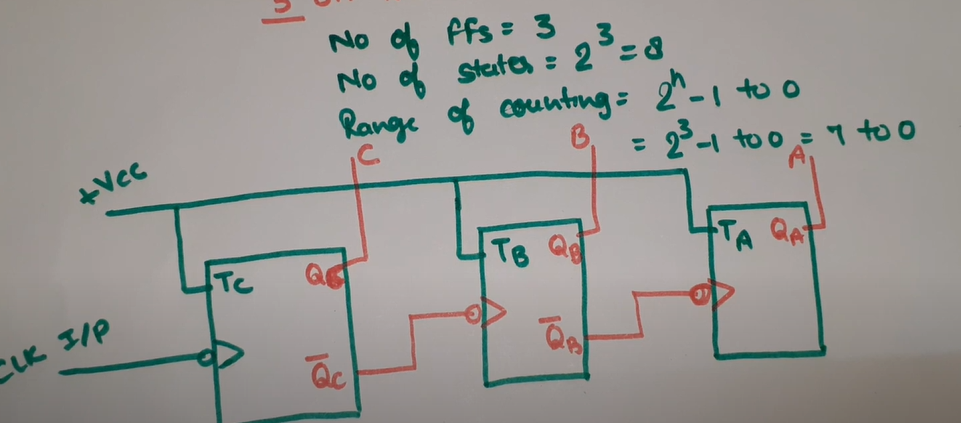 3
No of ffs = 3
No of states = 2³ = 8
Range of counting = 2ⁿ-1 to 0
= 2³-1 to 0 = 7 to 0
C
B
A
+Vcc
TC
QC
TB
QB
TA
QA
CLK I/P
Q̅C
Q̅B